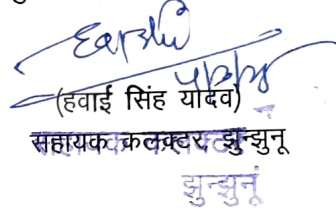 (हवाई सिंह यादव)
सहायक कलक्टर झुन्झुनू
झुन्झुनूं